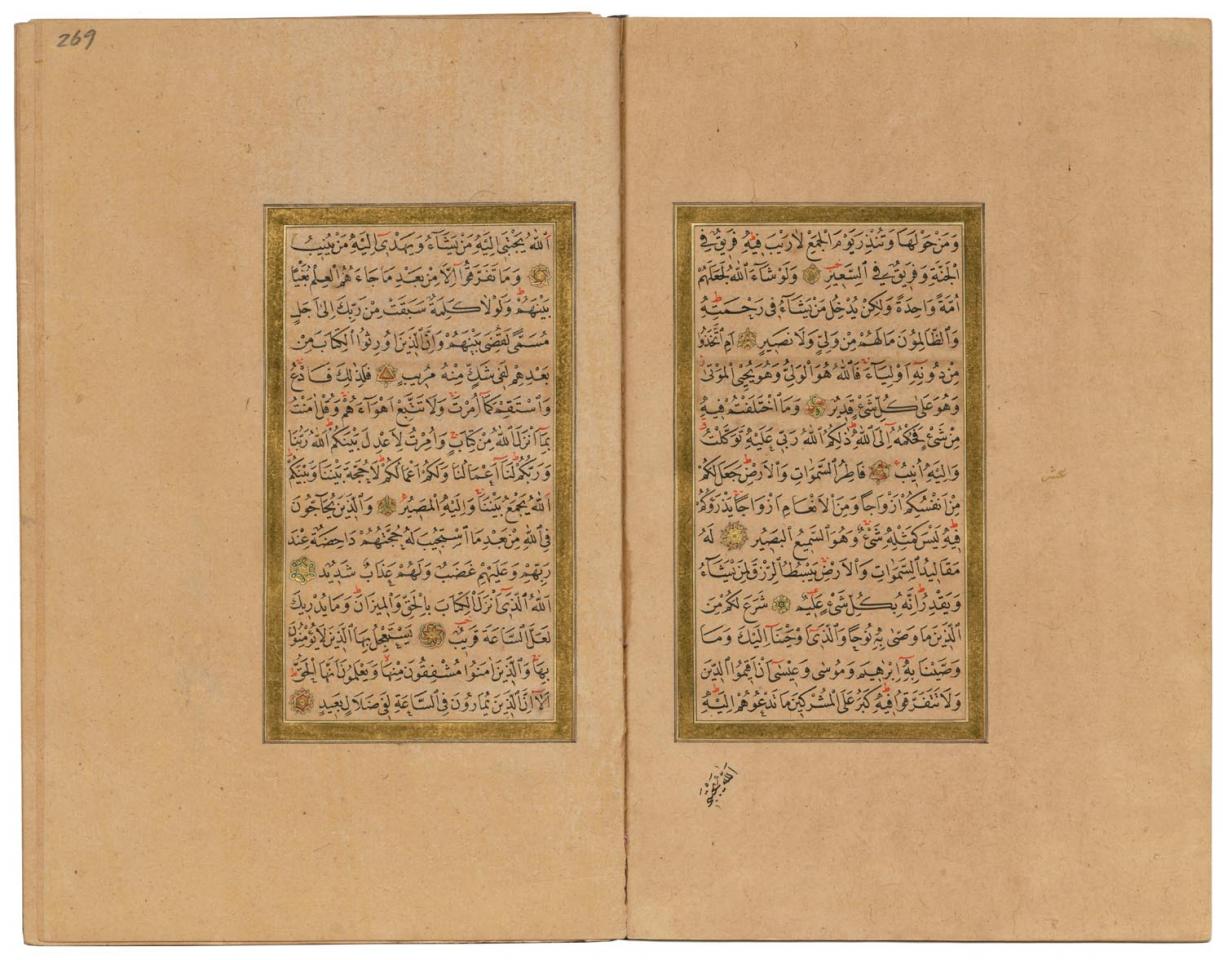 وَمَنْ حَوْلَهَا وَتُنْذِرَ يَوْمَ الْجَمْعِ لَا رَيْبَ فِيهِ فَرِيقٌ فِي
الْجَنَّةِ وَفَرِيقٌ فِي السَّعِيرِ وَلَوْ شَاءَ اللّٰهُ لَجَعَلَهُمْ
أُمَّةً وَاحِدَةً وَلٰكِنْ يُدْخِلُ مَنْ يَشَاءُ فِي رَحْمَتِهِ
وَالظَّالِمُونَ مَا لَهُمْ مِنْ وَلِيٍّ وَلَا نَصِيرٍ أَمِ اتَّخَذُوا
مِنْ دُونِهِ أَوْلِيَاءَ فَاللّٰهُ هُوَ الْوَلِيُّ وَهُوَ يُحْيِي الْمَوْتَى
وَهُوَ عَلَى كُلِّ شَيْءٍ قَدِيرٌ وَمَا اخْتَلَفْتُمْ فِيهِ
مِنْ شَيْءٍ فَحُكْمُهُ إِلَى اللّٰهِ ذٰلِكُمُ اللّٰهُ رَبِّي عَلَيْهِ تَوَكَّلْتُ
وَإِلَيْهِ أُنِيبُ فَاطِرُ السَّمٰوَاتِ وَالْأَرْضِ جَعَلَ لَكُمْ
مِنْ أَنْفُسِكُمْ أَزْوَاجًا وَمِنَ الْأَنْعَامِ أَزْوَاجًا يَذْرَؤُكُمْ
فِيهِ لَيْسَ كَمِثْلِهِ شَيْءٌ وَهُوَ السَّمِيعُ الْبَصِيرُ لَهُ
مَقَالِيدُ السَّمٰوَاتِ وَالْأَرْضِ يَبْسُطُ الرِّزْقَ لِمَنْ يَشَاءُ
وَيَقْدِرُ إِنَّهُ بِكُلِّ شَيْءٍ عَلِيمٌ شَرَعَ لَكُمْ مِنَ
الدِّينِ مَا وَصَّى بِهِ نُوحًا وَالَّذِي أَوْحَيْنَا إِلَيْكَ وَمَا
وَصَّيْنَا بِهِ إِبْرٰهِيمَ وَمُوسَى وَعِيسَى أَنْ أَقِيمُوا الدِّينَ
وَلَا تَتَفَرَّقُوا فِيهِ كَبُرَ عَلَى الْمُشْرِكِينَ مَا تَدْعُوهُمْ إِلَيْهِ
اللّٰهُ يَجْتَبِي
269
اللّٰهُ يَجْتَبِي إِلَيْهِ مَنْ يَشَاءُ وَيَهْدِي إِلَيْهِ مَنْ يُنِيبُ
وَمَا تَفَرَّقُوا إِلَّا مِنْ بَعْدِ مَا جَاءَهُمُ الْعِلْمُ بَغْيًا
بَيْنَهُمْ وَلَوْلَا كَلِمَةٌ سَبَقَتْ مِنْ رَبِّكَ إِلَى أَجَلٍ
مُسَمًّى لَقُضِيَ بَيْنَهُمْ وَإِنَّ الَّذِينَ أُورِثُوا الْكِتَابَ مِنْ
بَعْدِهِمْ لَفِي شَكٍّ مِنْهُ مُرِيبٍ فَلِذٰلِكَ فَادْعُ
وَاسْتَقِمْ كَمَا أُمِرْتَ وَلَا تَتَّبِعْ أَهْوَاءَهُمْ وَقُلْ آمَنْتُ
بِمَا أَنْزَلَ اللّٰهُ مِنْ كِتَابٍ وَأُمِرْتُ لِأَعْدِلَ بَيْنَكُمُ اللّٰهُ رَبُّنَا
وَرَبُّكُمْ لَنَا أَعْمَالُنَا وَلَكُمْ أَعْمَالُكُمْ لَا حُجَّةَ بَيْنَنَا وَبَيْنَكُمُ
اللّٰهُ يَجْمَعُ بَيْنَنَا وَإِلَيْهِ الْمَصِيرُ وَالَّذِينَ يُحَاجُّونَ
فِي اللّٰهِ مِنْ بَعْدِ مَا اسْتُجِيبَ لَهُ حُجَّتُهُمْ دَاحِضَةٌ عِنْدَ
رَبِّهِمْ وَعَلَيْهِمْ غَضَبٌ وَلَهُمْ عَذَابٌ شَدِيدٌ
اللّٰهُ الَّذِي أَنْزَلَ الْكِتَابَ بِالْحَقِّ وَالْمِيزَانَ وَمَا يُدْرِيكَ
لَعَلَّ السَّاعَةَ قَرِيبٌ يَسْتَعْجِلُ بِهَا الَّذِينَ لَا يُؤْمِنُونَ
بِهَا وَالَّذِينَ آمَنُوا مُشْفِقُونَ مِنْهَا وَيَعْلَمُونَ أَنَّهَا الْحَقُّ
أَلَا إِنَّ الَّذِينَ يُمَارُونَ فِي السَّاعَةِ لَفِي ضَلَالٍ بَعِيدٍ